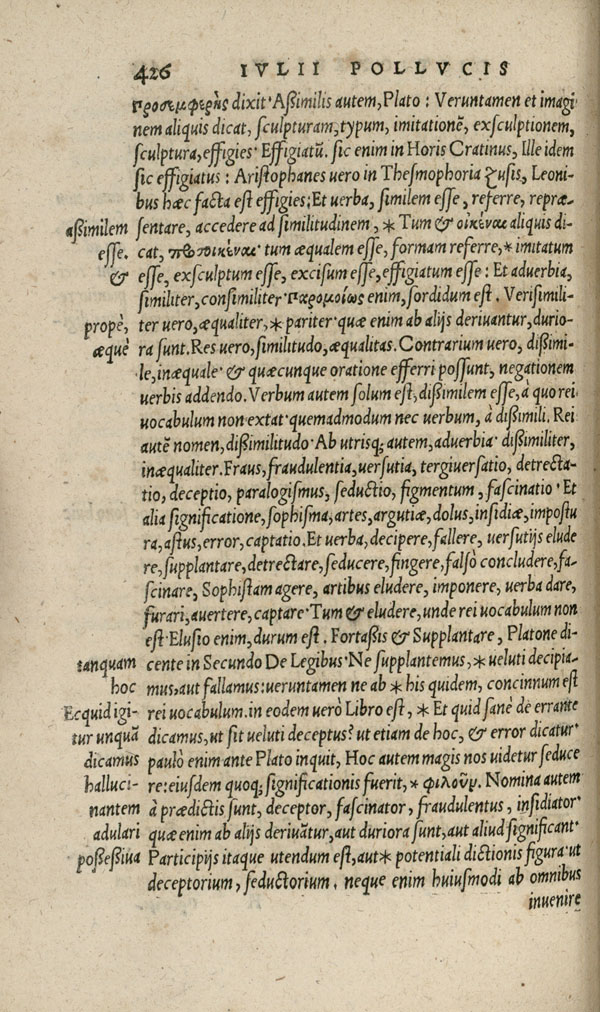 426 IVLII POLLVCIS
προσεμφερὴς dixit· Aßimilis autem, Plato : Veruntamen et imagi
nem aliquis dicat, ſculpturam, typum, imitationē, exſculptionem,
ſculptura, effigies· Effigiatū. ſic enim in Horis Cratinus, Ille idem
ſic effigiatus : Ariſtophanes uero in Theſmophoria Ζuſis, Leoni-
bus hæc facta eſt effigies; Et uerba, ſimilem eſſe, referre, repræ-
aßimilem ſentare, accedere ad ſimilitudinem, * Tum & οἰκέναι aliquis di-
eſſe. cat, tum æqualem eſſe, formam referre, * imitatum
& eſſe, exſculptum eſſe, exciſum eſſe, effigiatum eſſe : Et aduerbia,
ſimiliter, conſimiliter· παρομοίως enim, ſordidum eſt. Veriſimili-
propè, ter uero, æqualiter, * pariter· quæ enim ab alijs deriuantur, durio-
æquè ra ſunt. Res uero, ſimilitudo, æqualitas. Contrarium uero, dißimi-
le, inæquale· & quæcunque oratione efferri poſſunt, negationem
uerbis addendo. Verbum autem ſolum eſt, dißimilem eſſe, à quo rei
uocabulum non extat· quemadmodum nec uerbum, à dißimili. Rei
autē nomen, dißimilitudo· Ab utrisq; autem, aduerbia· dißimiliter,
inæqualiter. Fraus, fraudulentia, uerſutia, tergiuerſatio, detrecta-
tio, deceptio, paralogiſmus, ſeductio, figmentum, faſcinatio· Et
alia ſignificatione, ſophiſma, artes, argutiæ, dolus, inſidiæ, impoſtu
ra, aſtus, error, captatio. Et uerba, decipere, fallere, uerſutijs elude
re, ſupplantare, detrectare, ſeducere, fingere, falſò concludere, fa-
ſcinare, Sophiſtam agere, artibus eludere, imponere, uerba dare,
furari, auertere, captare· Tum & eludere, unde rei uocabulum non
eſt· Eluſio enim, durum eſt. Fortaßis & Supplantare, Platone di-
tanquam cente in Secundo De Legibus· Ne ſupplantemus, * ueluti decipia-
hoc mus, aut fallamus: ueruntamen ne ab * his quidem, concinnum eſt
Ecquid igi- rei uocabulum. in eodem uerò Libro eſt, * Et quid ſanè de errante
tur unquā dicamus, ut ſit ueluti deceptus? ut etiam de hoc, & error dicatur·
dicamus paulò enim ante Plato inquit, Hoc autem magis nos uidetur ſeduce
halluci- re: eiuſdem quoq; ſignificationis fuerit, * φιλοῦν. Nomina autem
nantem à prædictis ſunt, deceptor, faſcinator, fraudulentus, inſidiator·
adulari quæ enim ab alijs deriuātur, aut duriora ſunt, aut aliud ſignificant·
poßeßiua Participijs itaque utendum eſt, aut * potentiali dictionis figura· ut
deceptorium, ſeductorium. neque enim huiuſmodi ab omnibus
inuenire